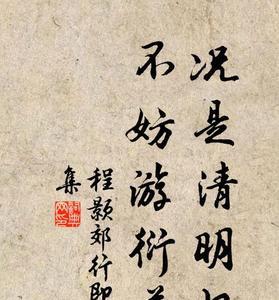 况是清明
不妨游衍
程颢郊行即
集